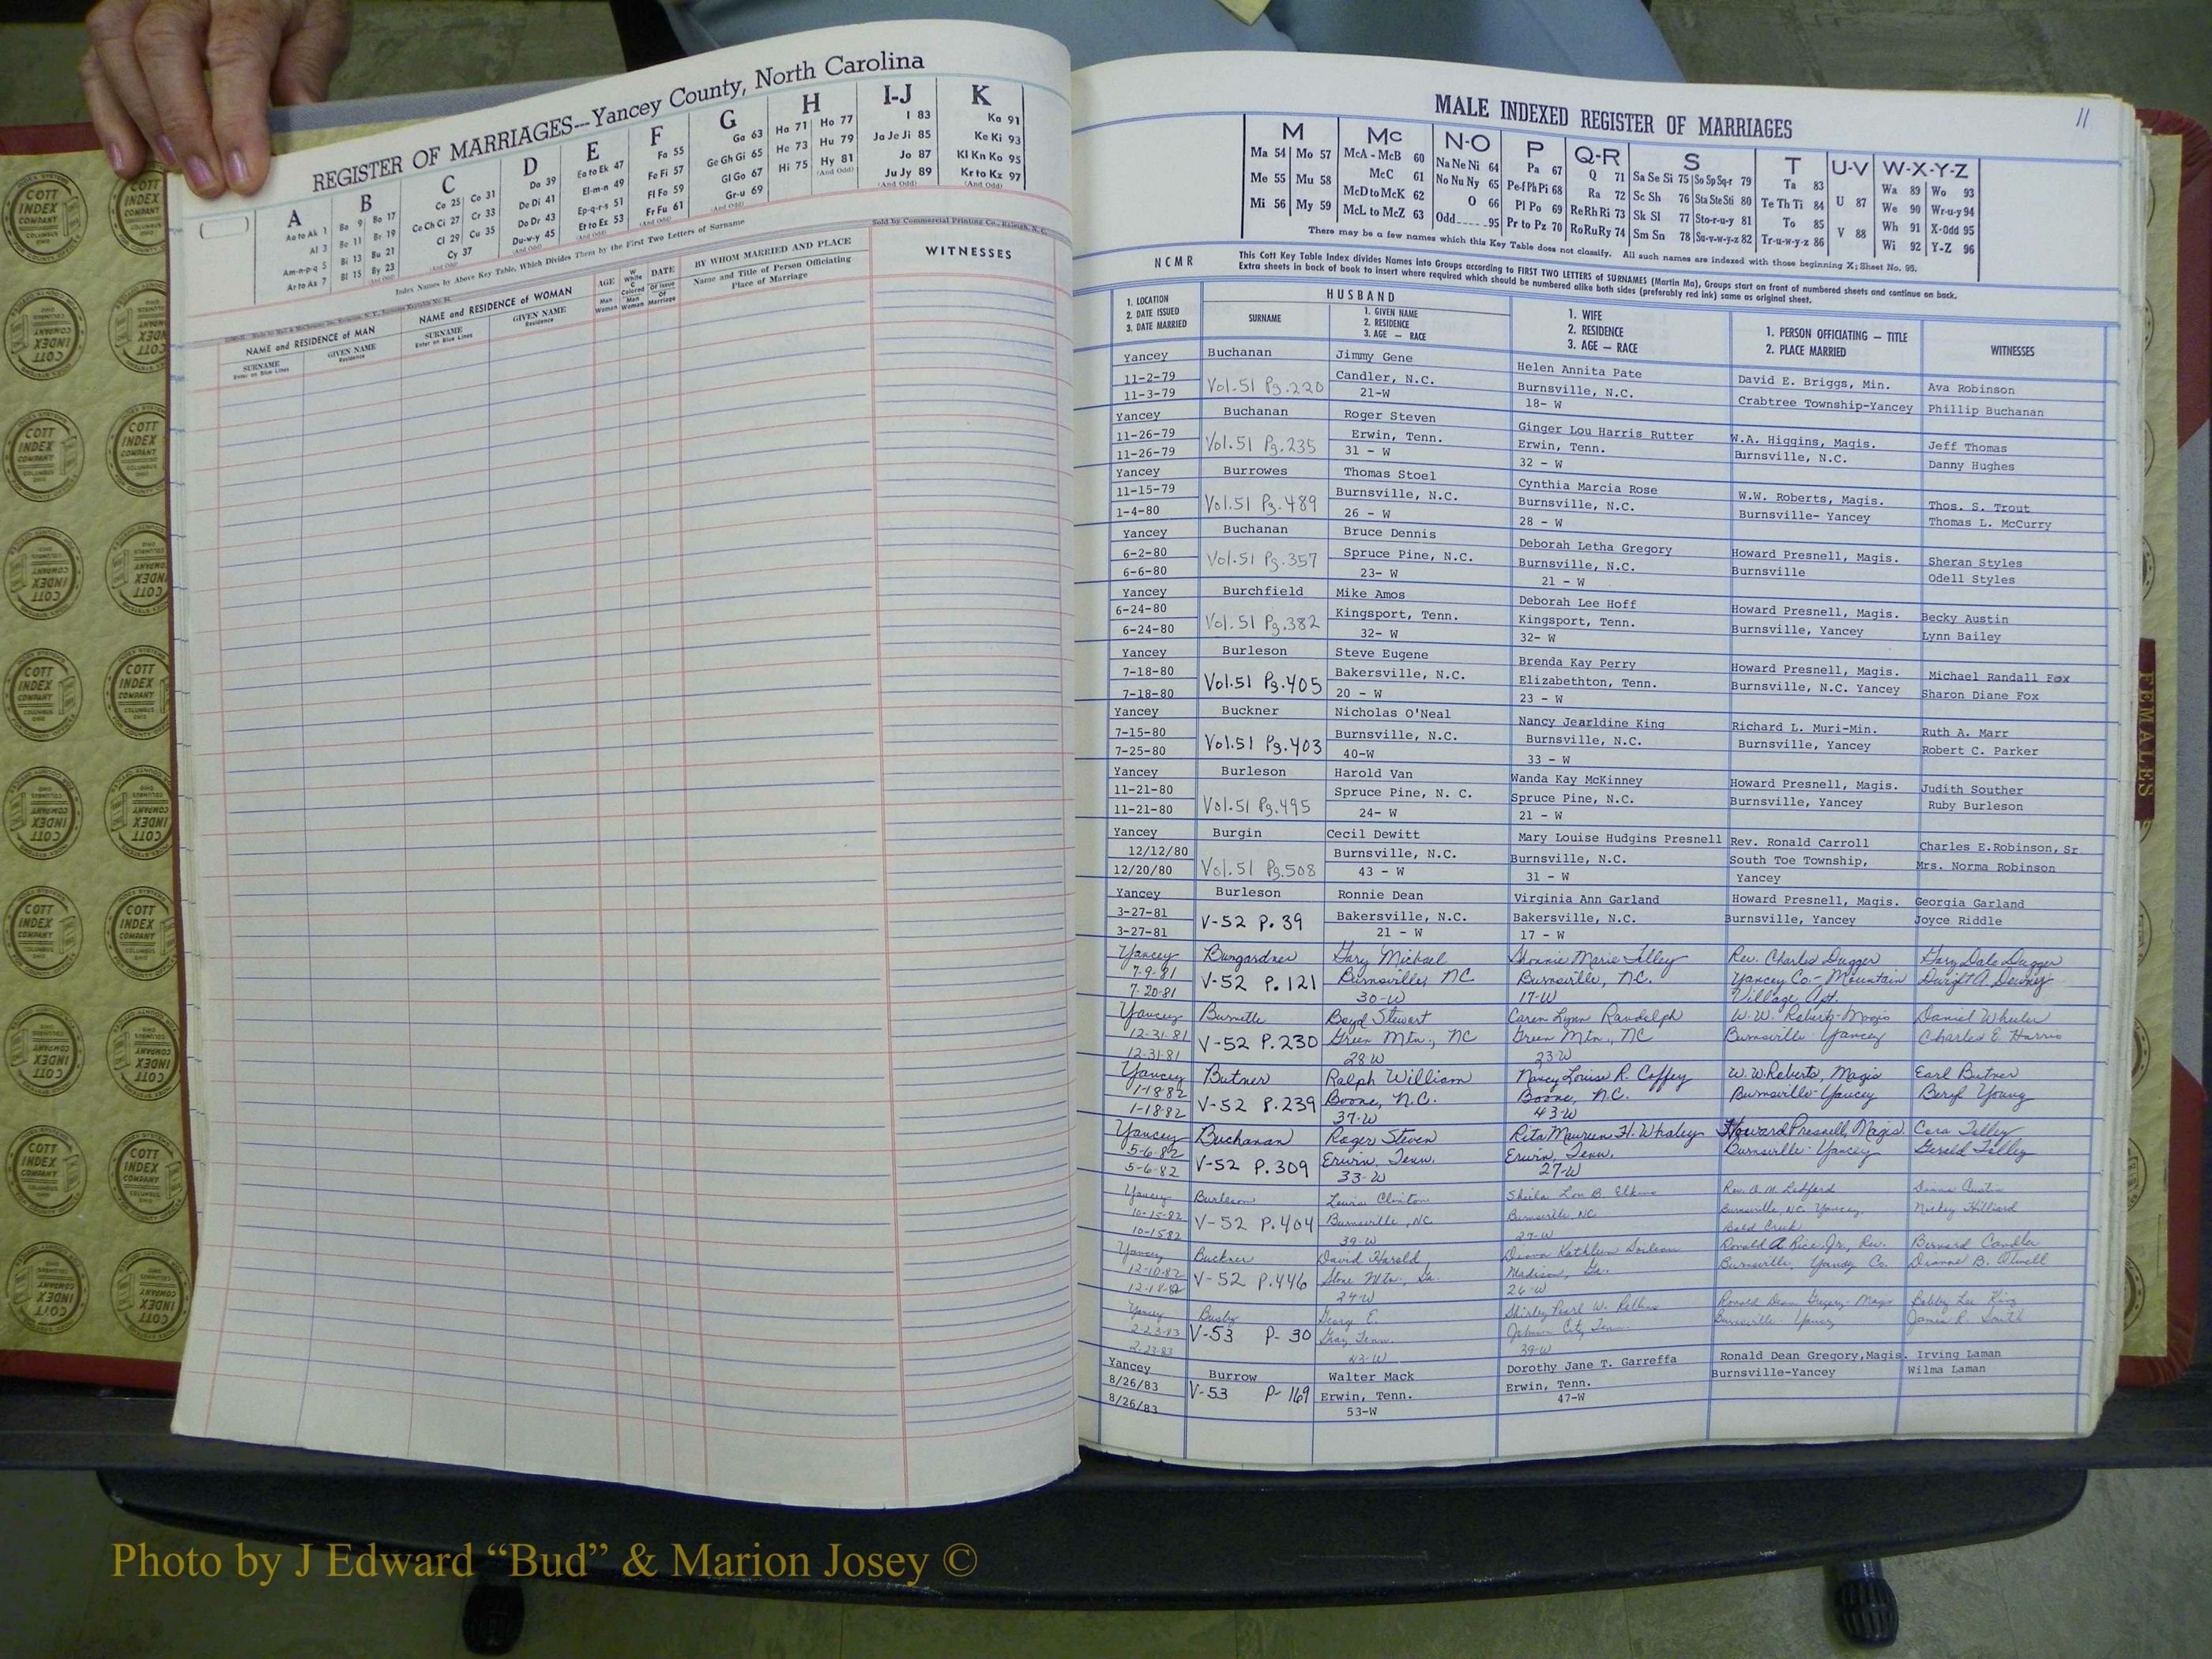 REGISTER OF MARRIAGES---Yancey County, North Carolina
A
Aa to Ak 1
Al 3
Am-n-p-q 5
Ar to Az 7
B
Ba 9 Bo 17
Be 11 Br 19
Bi 13 Bu 21
Bl 15 By 23
C
Ca 25 Co 31
Ce Ch Ci 27 Cr 33
Cl 29 Cu 35
Cy 37
(And Odd)
D
Da 39
De Di 41
Do Dr 43
Du-w-y 45
(And Odd)
E
Ea to Ek 47
El-m-n 49
Ep-q-r-s 51
Et to Ez 53
F
Fa 55
Fe Fi 57
Fl Fo 59
Fr Fu 61
(And Odd)
G
Ga 63
Ge Gh Gi 65
Gl Go 67
Gr-u 69
(And Odd)
H
Ha 71 Ho 77
He 73 Hu 79
Hi 75 Hy 81
(And Odd)
I-J
I 83
Ja Je Ji 85
Jo 87
Ju Jy 89
(And Odd)
K
Ka 91
Ke Ki 93
Kl Kn Ko 95
Kr to Kz 97
(And Odd)
Index Names by Above Key Table, Which Divides Them by the First Two Letters of Surname
Sold by Commercial Printing Co., Raleigh, N. C.
NAME and RESIDENCE of MAN
SURNAME
Enter on Blue Lines
GIVEN NAME
Residence
NAME and RESIDENCE of WOMAN
SURNAME
Enter on Blue Lines
GIVEN NAME
Residence
AGE
Man
Woman
W
White
C
Colored
Man
Woman
DATE
Of Issue
Of
Marriage
BY WHOM MARRIED AND PLACE
Name and Title of Person Officiating
Place of Marriage
WITNESSES
11
MALE INDEXED REGISTER OF MARRIAGES
M
Ma 54 Mo 57
Me 55 Mu 58
Mi 56 My 59
Mc
McA - McB 60
McC 61
McD to McK 62
McL to McZ 63
N-O
Na Ne Ni 64
No Nu Ny 65
O 66
Odd 95
P
Pa 67
Pe-f Ph Pi 68
Pl Po 69
Pr to Pz 70
Q-R
Q 71
Ra 72
Re Rh Ri 73
Ro Ru Ry 74
S
Sa Se Si 75 So Sp Sq-r 79
Sc Sh 76 Sta Ste Sti 80
Sk Sl 77 Sto-r-u-y 81
Sm Sn 78 Su-v-w-y-z 82
T
Ta 83
Te Th Ti 84
To 85
Tr-u-w-y-z 86
U-V
U 87
V 88
W-X-Y-Z
Wa 89 Wo 93
We 90 Wr-u-y 94
Wh 91 X-Odd 95
Wi 92 Y-Z 96
There may be a few names which this Key Table does not classify. All such names are indexed with those beginning X; Sheet No. 95.
This Cott Key Table Index divides Names into Groups according to FIRST TWO LETTERS of SURNAMES (Martin Ma), Groups start on front of numbered sheets and continue on back.
Extra sheets in back of book to insert where required which should be numbered alike both sides (preferably red ink) same as original sheet.
NCMR
1. LOCATION
2. DATE ISSUED
3. DATE MARRIED
HUSBAND
SURNAME
1. GIVEN NAME
2. RESIDENCE
3. AGE — RACE
1. WIFE
2. RESIDENCE
3. AGE — RACE
1. PERSON OFFICIATING — TITLE
2. PLACE MARRIED
WITNESSES
Yancey Buchanan Jimmy Gene Helen Annita Pate David E. Briggs, Min. Ava Robinson
11-2-79 Vol.51 Pg.220 Candler, N.C. Burnsville, N.C. Crabtree Township-Yancey Phillip Buchanan
11-3-79 21-W 18- W
Yancey Buchanan Roger Steven Ginger Lou Harris Rutter W.A. Higgins, Magis. Jeff Thomas
11-26-79 Vol.51 Pg.235 Erwin, Tenn. Erwin, Tenn. Burnsville, N.C. Danny Hughes
11-26-79 31 - W 32 - W
Yancey Burrowes Thomas Stoel Cynthia Marcia Rose W.W. Roberts, Magis. Thos. S. Trout
11-15-79 Vol.51 Pg.489 Burnsville, N.C. Burnsville, N.C. Burnsville- Yancey Thomas L. McCurry
1-4-80 26 - W 28 - W
Yancey Buchanan Bruce Dennis Deborah Letha Gregory Howard Presnell, Magis. Sheran Styles
6-2-80 Vol.51 Pg.357 Spruce Pine, N.C. Burnsville, N.C. Burnsville Odell Styles
6-6-80 23- W 21 - W
Yancey Burchfield Mike Amos Deborah Lee Hoff Howard Presnell, Magis. Becky Austin
6-24-80 Vol.51 Pg.382 Kingsport, Tenn. Kingsport, Tenn. Burnsville, Yancey Lynn Bailey
6-24-80 32- W 32- W
Yancey Burleson Steve Eugene Brenda Kay Perry Howard Presnell, Magis. Michael Randall Fox
7-18-80 Vol.51 Pg.405 Bakersville, N.C. Elizabethton, Tenn. Burnsville, N.C. Yancey Sharon Diane Fox
7-18-80 20 - W 23 - W
Yancey Buckner Nicholas O'Neal Nancy Jearldine King Richard L. Muri-Min. Ruth A. Marr
7-15-80 Vol.51 Pg.403 Burnsville, N.C. Burnsville, N.C. Burnsville, Yancey Robert C. Parker
7-25-80 40-W 33 - W
Yancey Burleson Harold Van Wanda Kay McKinney Howard Presnell, Magis. Judith Souther
11-21-80 Vol.51 Pg.495 Spruce Pine, N. C. Spruce Pine, N.C. Burnsville, Yancey Ruby Burleson
11-21-80 24- W 21 - W
Yancey Burgin Cecil Dewitt Mary Louise Hudgins Presnell Rev. Ronald Carroll Charles E.Robinson, Sr
12/12/80 Vol.51 Pg.508 Burnsville, N.C. Burnsville, N.C. South Toe Township, Mrs. Norma Robinson
12/20/80 43 - W 31 - W Yancey
Yancey Burleson Ronnie Dean Virginia Ann Garland Howard Presnell, Magis. Georgia Garland
3-27-81 V-52 P. 39 Bakersville, N.C. Bakersville, N.C. Burnsville, Yancey Joyce Riddle
3-27-81 21 - W 17 - W
Yancey Bungardner Gary Michael Marie Tilley Rev. Charles Dugger Gary Dale Dugger
7-9-81 V-52 P. 121 Burnsville, NC Burnsville, N.C. Yancey Co.- Mountain Dwight A.
7-20-81 30-W 17-W Village Apt.
Yancey Burnette Boyd Stewart Caren Lynn Randolph W. W. Roberts-Magis Daniel Wheeler
12-31-81 V-52 P.230 Green Mtn., NC Green Mtn., NC Burnsville-Yancey Charles E Harris
12-31-81 28-W 23-W
Yancey Butner Ralph William Nancy Louise R. Coffey W. W. Roberts, Magis Earl Butner
1-18-82 V-52 P.239 Boone, N.C. Boone, N.C. Burnsville-Yancey Beryl Young
1-18-82 37-W 43-W
Yancey Buchanan Roger Steven Rita Maureen H. Whaley Howard Presnell, Magis Cora Tilley
5-6-82 V-52 P.309 Erwin, Tenn. Erwin, Tenn. Burnsville-Yancey Gerald Tilley
5-6-82 33-W 27-W
Yancey Burleson Lewis Clinton Sheila Lou B. Elkins Rev. Ledford Austin
10-15-82 V-52 P.404 Burnsville, NC Burnsville, NC Burnsville, NC. Yancey. Mickey Hilliard
10-1582 39-W 27-W Bald Creek
Yancey Buckner David Harold Diana Kathleen Ronald A Rice, Jr., Rev. Bernard
12-10-82 V-52 P.446 Stone Mtn., Ga. Madison, Ga. Burnsville, Yancey Co. Dianne B.
12-18-82 24-W 26-W
Yancey Busby George E. Shirley Pearl W. Ronald Dean Gregory-Magis Bobby Lee King
2-23-83 V-53 P- 30 Gray, Tenn. Johnson City, Tenn. Burnsville-Yancey James R. Smith
2-23-83 43-W 39-W
Yancey Burrow Walter Mack Dorothy Jane T. Garreffa Ronald Dean Gregory,Magis. Irving Laman
8/26/83 V-53 P- 169 Erwin, Tenn. Erwin, Tenn. Burnsville-Yancey Wilma Laman
8/26/83 53-W 47-W
FEMALES
COTT
INDEX
COMPANY
Photo by J Edward “Bud” & Marion Josey ©